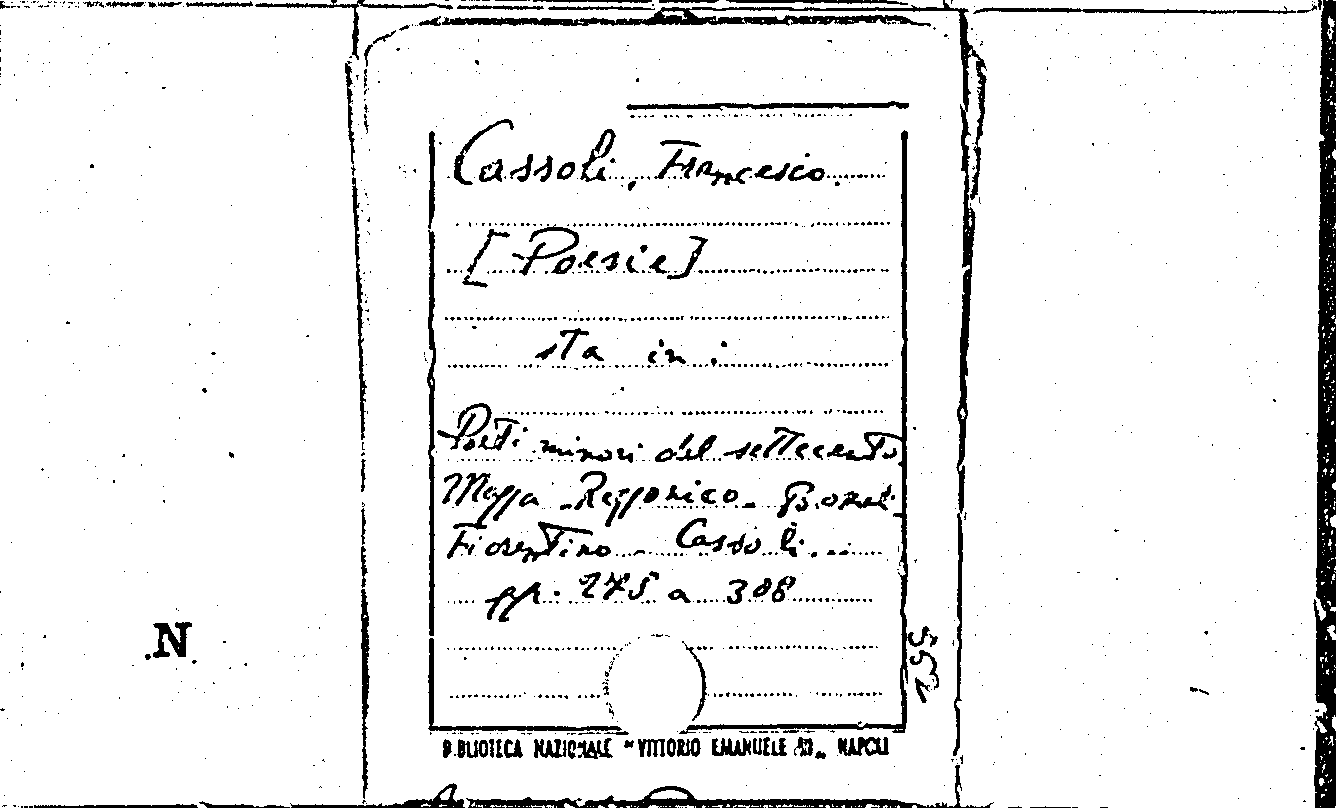 Cassoli, Francesco.
[Poesie]
sta in:
Poeti minori del settecento.
Mazza - Rezzonico - Bondi -
Fiorentino - Cassoli...
pp. 275 a 308
N
BIBLIOTECA NAZIONALE "VITTORIO EMANUELE III" NAPOLI